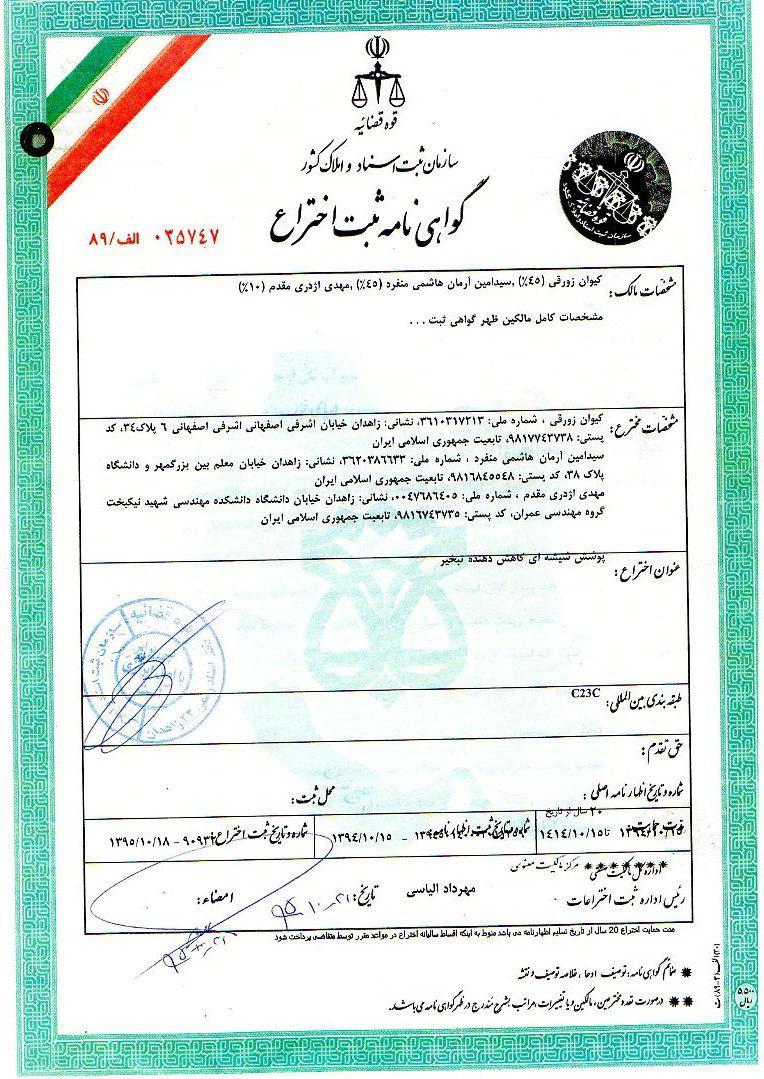 قوه قضائیه
سازمان ثبت اسناد و املاک کشور
گواهی نامه ثبت اختراع
۰۳۵۷۴۷ الف/۸۹
مشخصات مالک: کیوان زورقی (۴۵٪) ,سیدامین آرمان هاشمی منفرد (۴۵٪) ,مهدی اژدری مقدم (۱۰٪)
مشخصات کامل مالکین ظهر گواهی ثبت ...
مشخصات مخترع: کیوان زورقی ، شماره ملی: ۳۶۱۰۳۱۷۲۱۳، نشانی: زاهدان خیابان اشرفی اصفهانی اشرفی اصفهانی ۶ پلاک۳۴، کد
پستی: ۹۸۱۷۷۴۳۷۳۸، تابعیت جمهوری اسلامی ایران
سیدامین آرمان هاشمی منفرد ، شماره ملی: ۳۶۲۰۳۸۶۶۳۳، نشانی: زاهدان خیابان معلم بین بزرگمهر و دانشگاه
پلاک ۳۸، کد پستی: ۹۸۱۶۸۴۵۵۴۸، تابعیت جمهوری اسلامی ایران
مهدی اژدری مقدم ، شماره ملی: ۰۰۴۷۶۸۶۴۰۵، نشانی: زاهدان خیابان دانشگاه دانشکده مهندسی شهید نیکبخت
گروه مهندسی عمران، کد پستی: ۹۸۱۶۷۴۳۷۳۵، تابعیت جمهوری اسلامی ایران
عنوان اختراع: پوشش شیشه ای کاهش دهنده تبخیر
طبقه بندی بین المللی: C23C
حق تقدم:
شماره و تاریخ اظهار نامه اصلی: محل ثبت:
۲۰ سال از تاریخ
تا ۱۴۱۴/۱۰/۱۵
شماره و تاریخ ثبت اظهارنامه - ۱۳۹۴/۱۰/۱۵
شماره و تاریخ ثبت اختراع ۹۰۹۳۲ - ۱۳۹۵/۱۰/۱۸
مرکز مالکیت معنوی
رئیس اداره ثبت اختراعات مهرداد الیاسی تاریخ: امضاء:
مدت حمایت اختراع 20 سال از تاریخ تسلیم اظهارنامه می باشد منوط به اینکه اقساط سالیانه اختراع در مواعد مقرر توسط متقاضی پرداخت شود
✷ ضمائم گواهی نامه: توصیف، ادعا، خلاصه توصیف و نقشه
✷✷ درصورت تعدد مخترعین، مالکین و یا تغییرات، مراتب بشرح مندرج در ظهر گواهی نامه می باشد.
۵۵۰۰ ریال